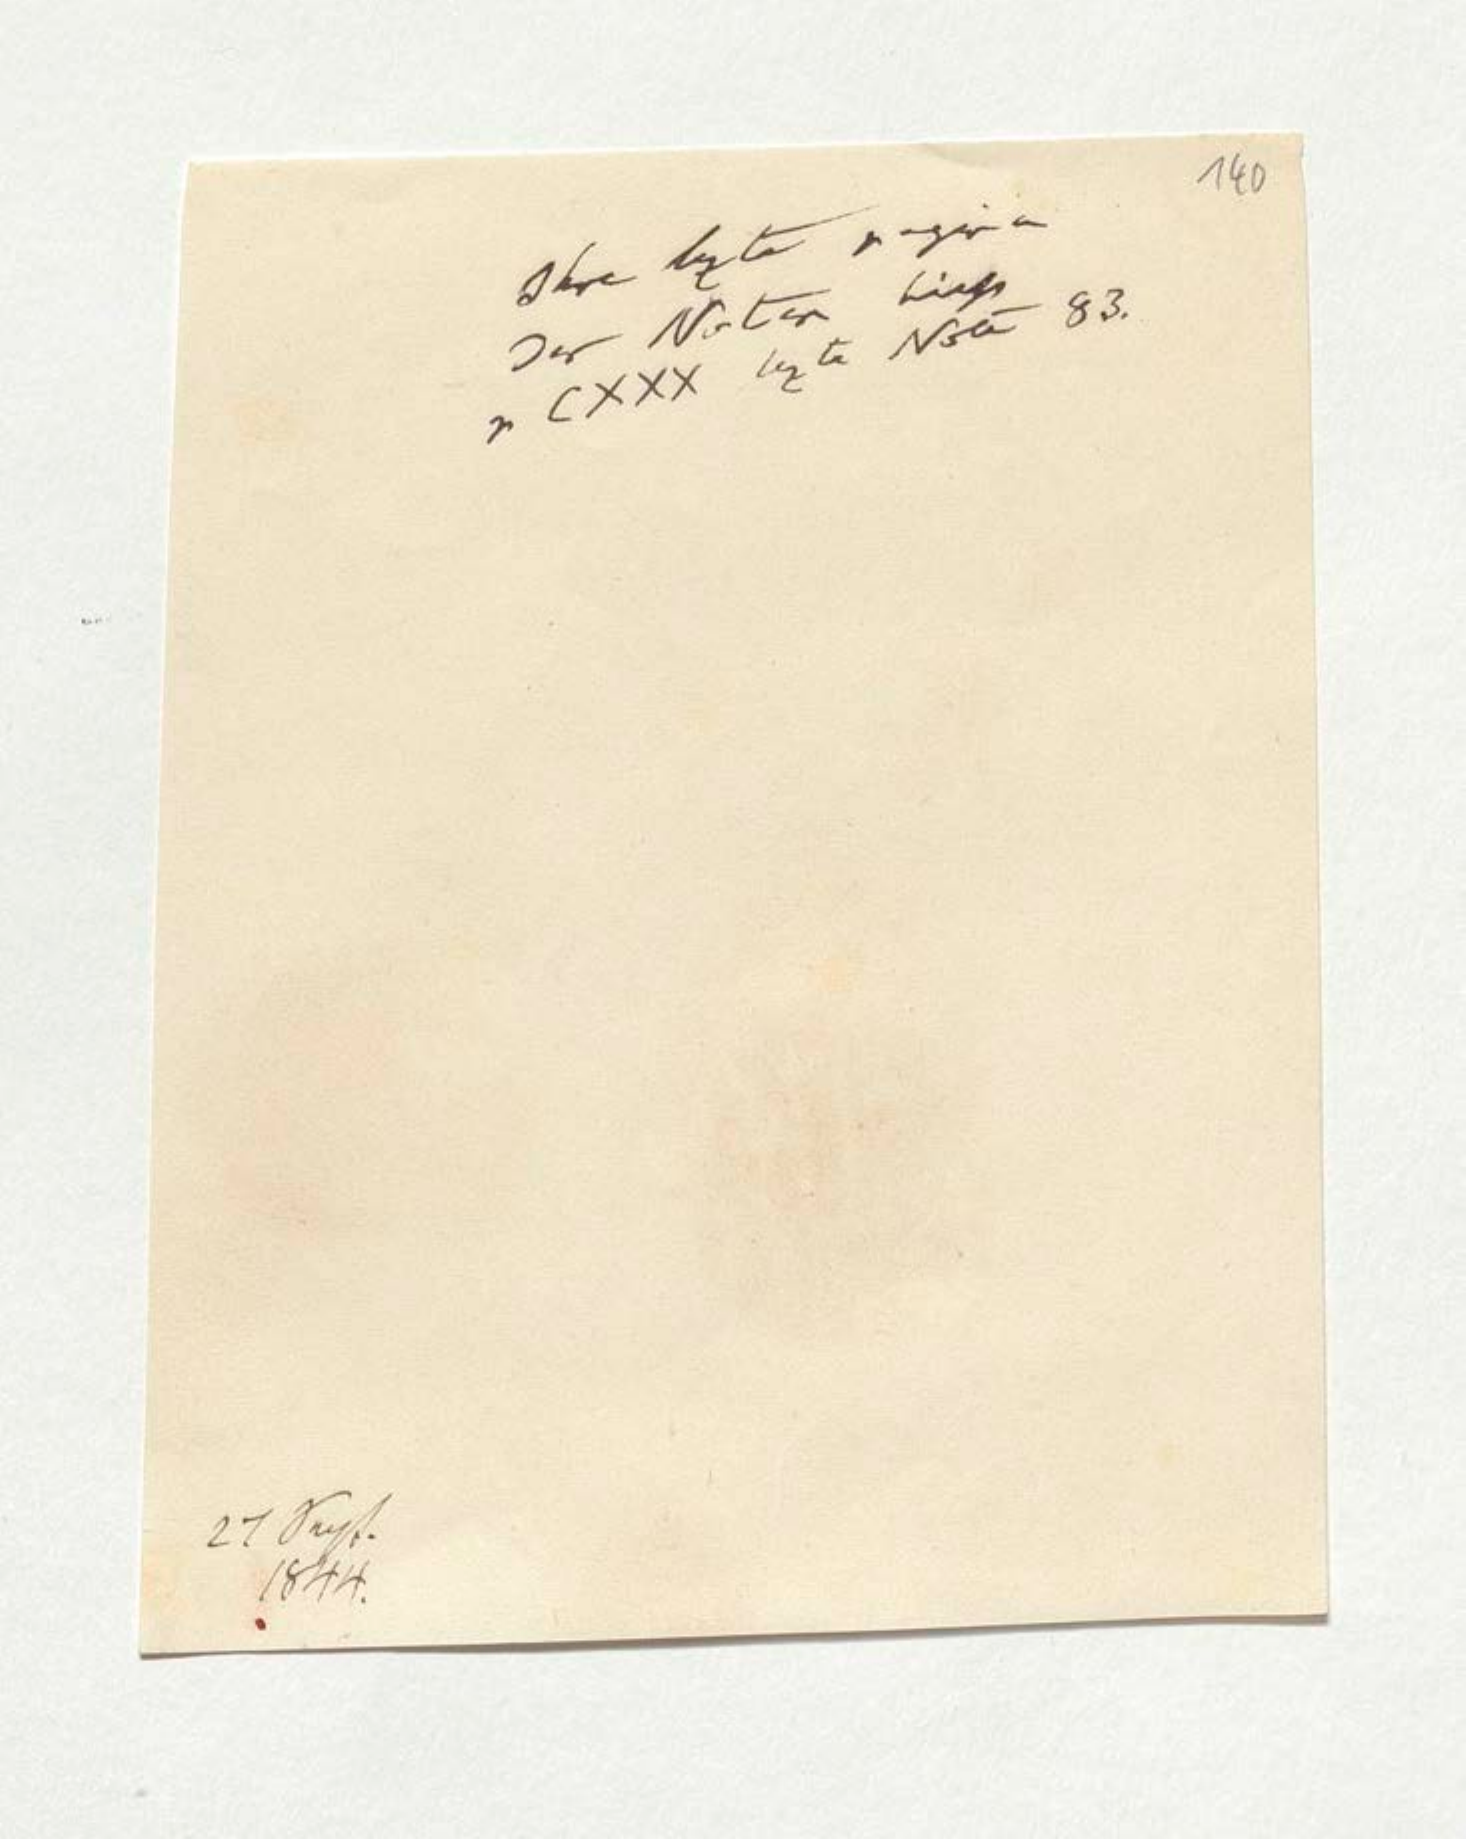 140
Ihre lezte pagina
der Noten hiess
p CXXX lezte Note 83.
27 Sept.
1844.